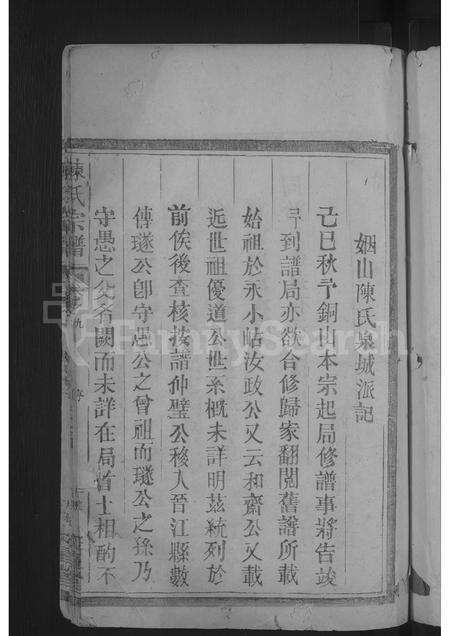 姻山陳氏泉城派記
己巳秋予銅山本宗起局修譜事將告竣
予到譜局亦欲合修歸家翻閱舊譜所載
始祖於永小岵汝政公又云和齋公又載
近世祖優道公世系概未詳明茲統列於
前俟後查核按譜仲璧公移入晉江縣數
傳璲公卽守愚公之曾祖而璲公之孫乃
守愚之父名闕而未詳在局首士相酌不
陳氏宗譜
FamilySearch